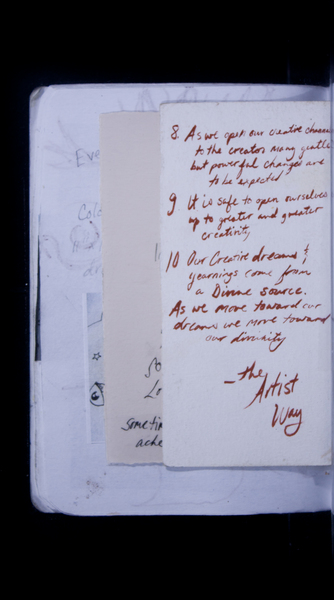 Eve
Colo
So
Lo
someti
ache
8. As we open our creative channe
to the creator many gentle
but powerful changes are
to be expected
9 It is safe to open ourselves
up to greater and greater
creativity
10 Our Creative dreams &
yearnings come from
a Divine source.
As we move toward our
dreams we move toward
our divinity
- the
Artist
Way